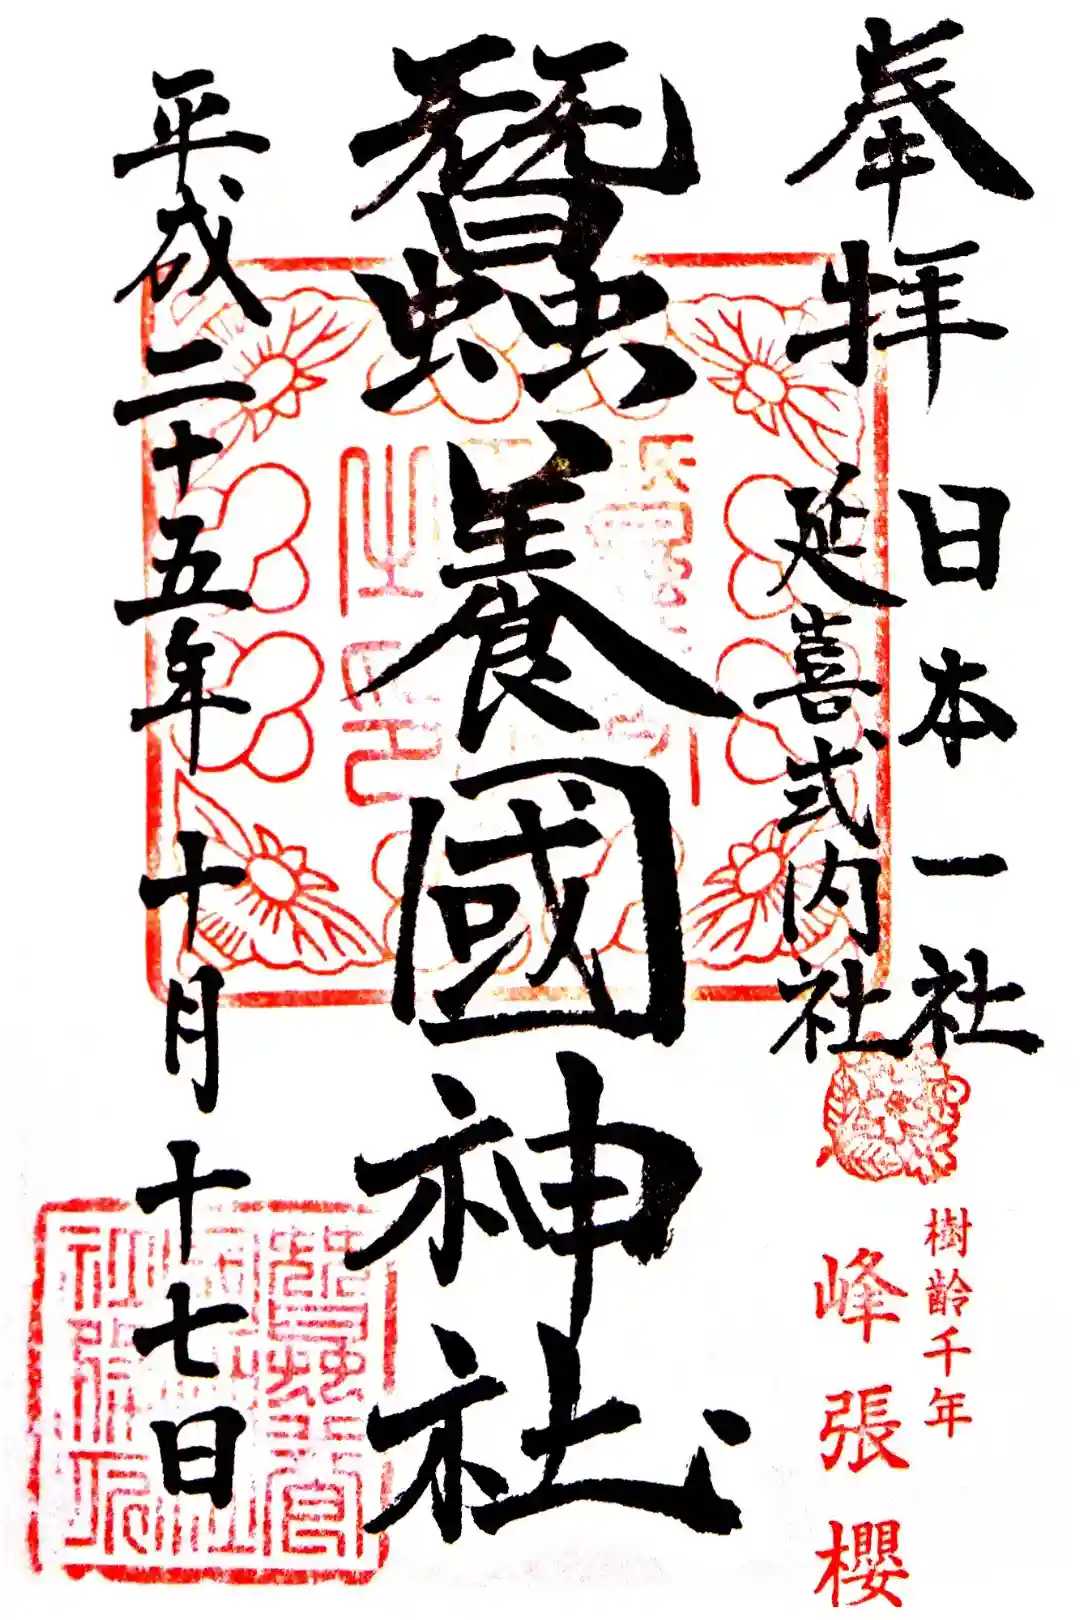 奉拜
日本一社
延喜式内社
樹齢千年
峰張櫻
蠶養國神社
平成二十五年十月十七日